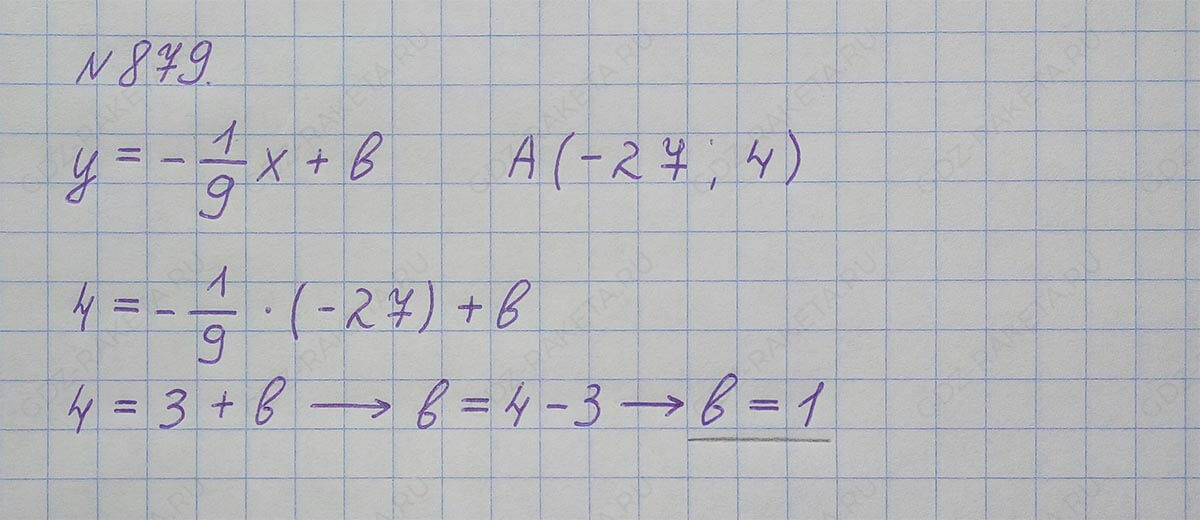 № 879.
y = - 1/9 x + b A (-27 ; 4)
4 = - 1/9 · (-27) + b
4 = 3 + b → b = 4 - 3 → b = 1
GDZ-RAKETA.RU